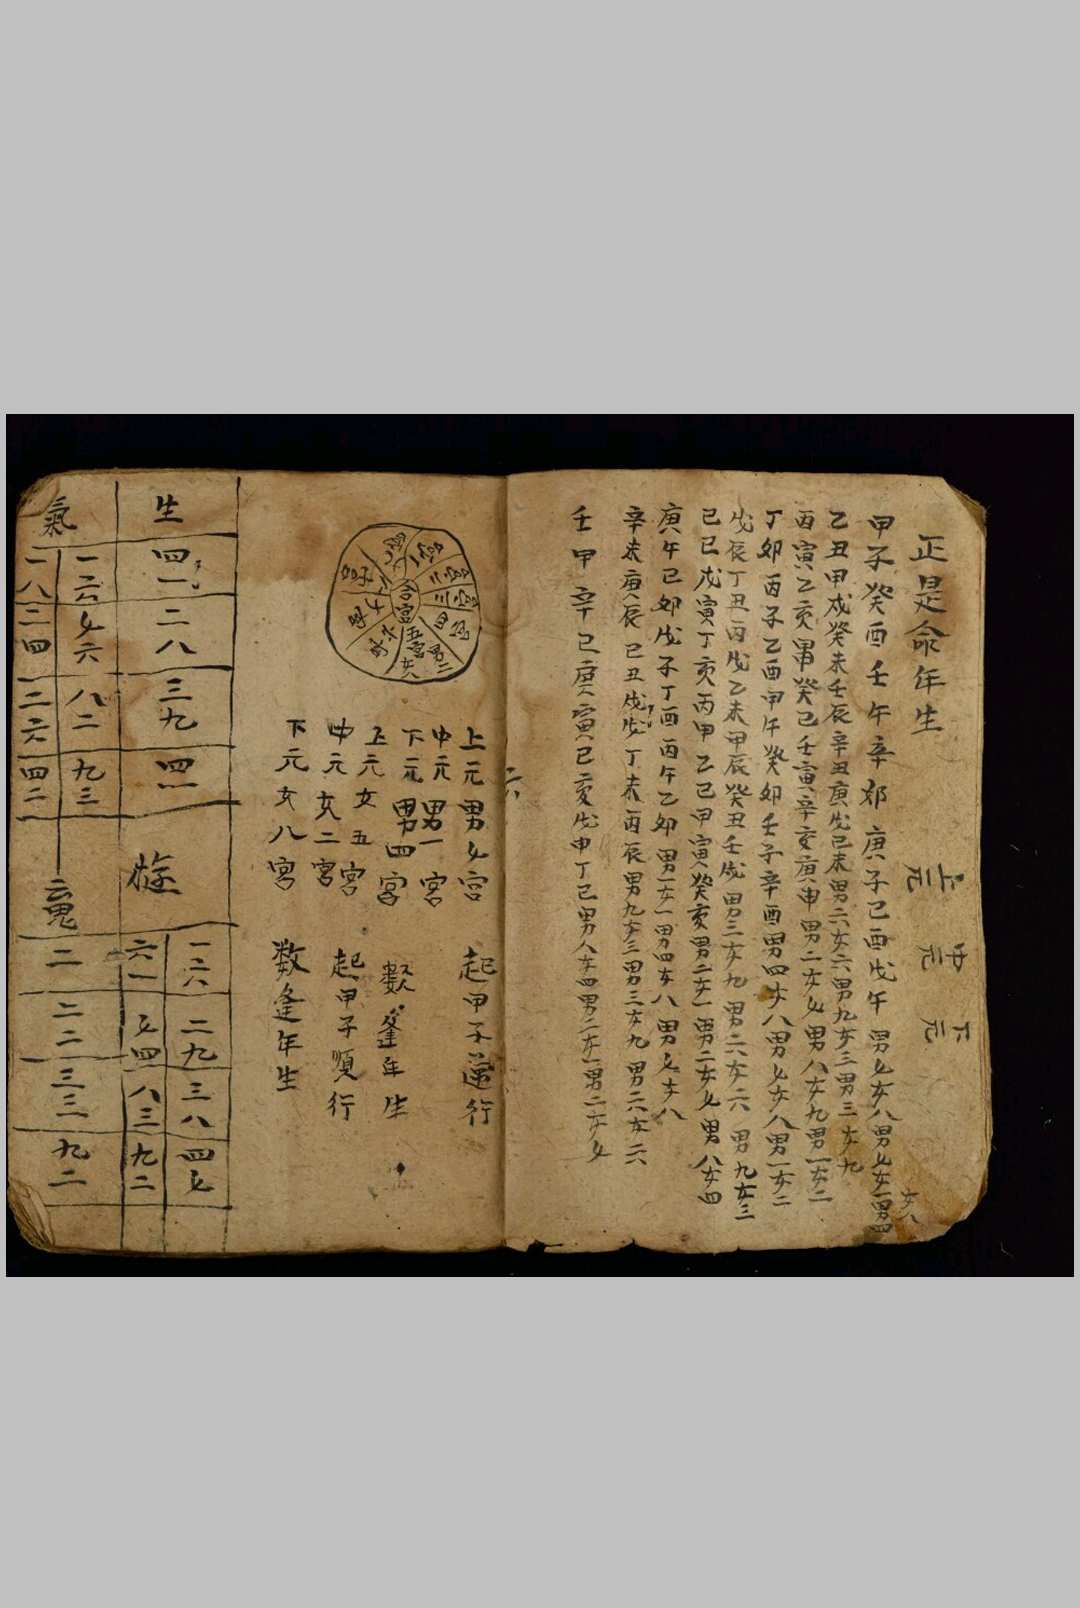 正是命年生
上元 中元 下元
甲子癸酉壬午辛卯庚子己酉戊午男七女八男七女一男四
女八
乙丑甲戌癸未壬辰辛丑庚戌己未男六女六男九女三男三女九
丙寅乙亥甲癸巳壬寅辛亥庚申男二女七男八女九男一女二
丁卯丙子乙酉甲午癸卯壬子辛酉男四女八男七女八男一女二
戊辰丁丑丙戌乙未甲辰癸丑壬戌男三女九男六女六男九女三
己巳戊寅丁亥丙甲乙巳甲寅癸亥男二女一男二女七男八女四
庚午己卯戊子丁酉丙午乙卯男一女一男四女八男七女八
辛未庚辰己丑戊戌丁未丙辰男九女三男三女九男六女六
壬甲辛巳庚寅己亥戊申丁巳男八女四男二女一男二女七
六
合宮
一宮
二宮
三宮
四宮
男二
五宮
女
上元男七宮 起甲子逆行
中元男一宮
下元男四宮 數逢年生
上元女五宮
中元女二宮 起甲子順行
下元女八宮 数逢年生
生
四一
二八
三九
四一
氣
一六
七六
八二
九三
一八
二四
二六
四二
遊
一六
二九
三八
四七
六一
七四
八三
九二
魂
二
二二
三三
九二